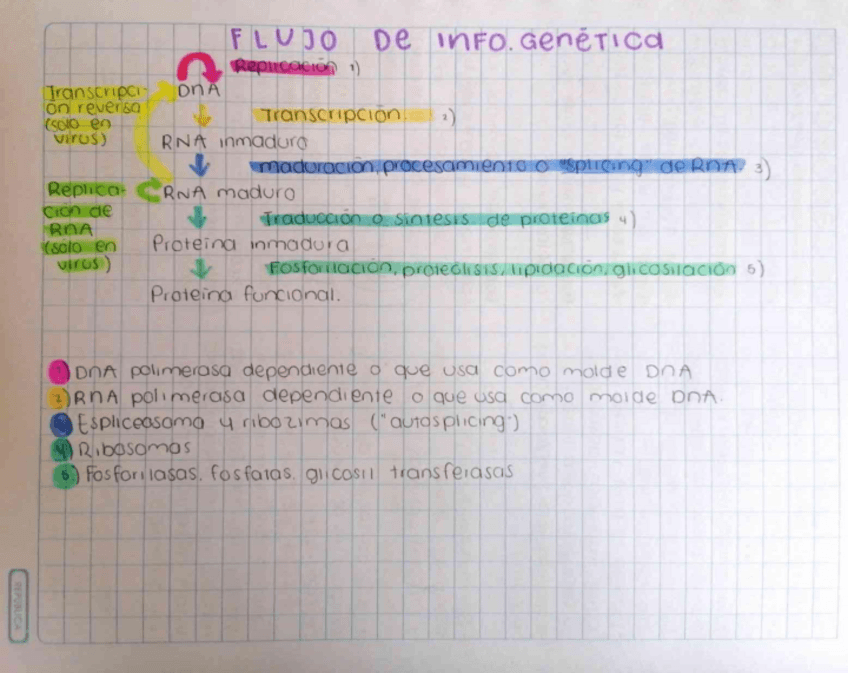 FLUJO DE INFO. GENÉTICA
Replicación 1)
Transcripci-
ón reversa
(solo en
virus)
DNA
Transcripción. 2)
RNA inmaduro
maduración, procesamiento o "splicing" de RNA. 3)
Replica-
ción de
RNA
(solo en
virus)
RNA maduro
Traducción o síntesis de proteínas 4)
Proteína inmadura
Fosforilación, proteólisis, lipidación, glicosilación 5)
Proteína funcional.
1) DNA polimerasa dependiente o que usa como molde DNA
2) RNA polimerasa dependiente o que usa como molde DNA.
Espliceosoma y ribozimas ("autosplicing")
4) Ribosomas
5) Fosforilasas, fosfatas, glicosil transferasas
REPÚBLICA